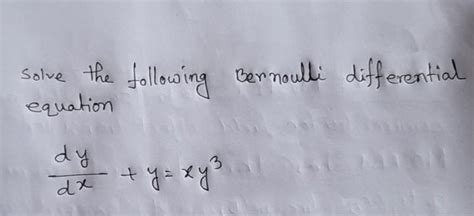 Solve the following Bernoulli differential
equation
dy/dx + y = xy³